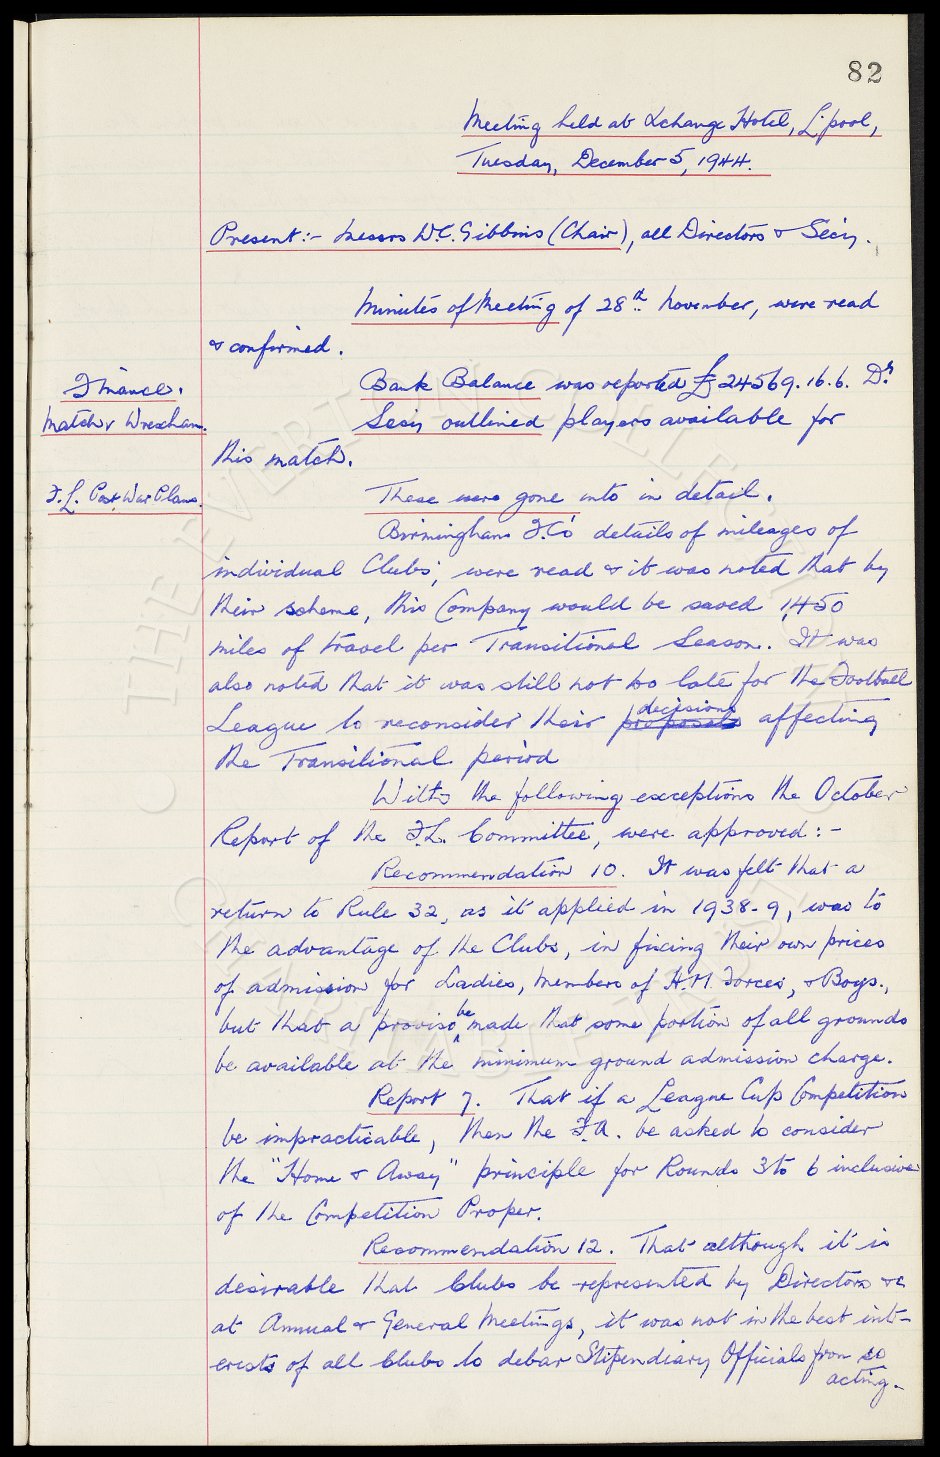 82
Meeting held at Xchange Hotel, L'pool,
Tuesday, December 5, 1944.
Present:- Messrs W.C. Gibbins (Chair), all Directors & Secy.
Minutes of Meeting of 28th November, were read
& confirmed.
Finance. Bank Balance was reported £24569.16.6. Dr.
Match v Wrexham. Secy outlined players available for
this match.
F.L. Post War Plans. These were gone into in detail.
Birmingham F.C's details of mileages of
individual Clubs', were read & it was noted that by
their scheme, this Company would be saved 1,450
miles of travel per Transitional Season. It was
also noted that it was still not too late for the Football
League to reconsider their proposals decisions affecting
the Transitional period
With the following exceptions the October
Report of the F.L. Committee, were approved:-
Recommendation 10. It was felt that a
return to Rule 32, as it applied in 1938-9, was to
the advantage of the Clubs, in fixing their own prices
of admission for Ladies, Members of H.M. Forces, & Boys.,
but that a proviso be made that some portion of all grounds
be available at the minimum ground admission charge.
Report 7. That if a League Cup Competition
be impracticable, then the F.A. be asked to consider
the "Home & Away" principle for Rounds 3 to 6 inclusive
of the Competition Proper.
Recommendation 12. That although it is
desirable that Clubs be represented by Directors &c
at Annual & General Meetings, it was not in the best int-
erests of all Clubs to debar Stipendiary Officials from so
acting.
THE EVERTON COLLECTION
CHARITABLE TRUST